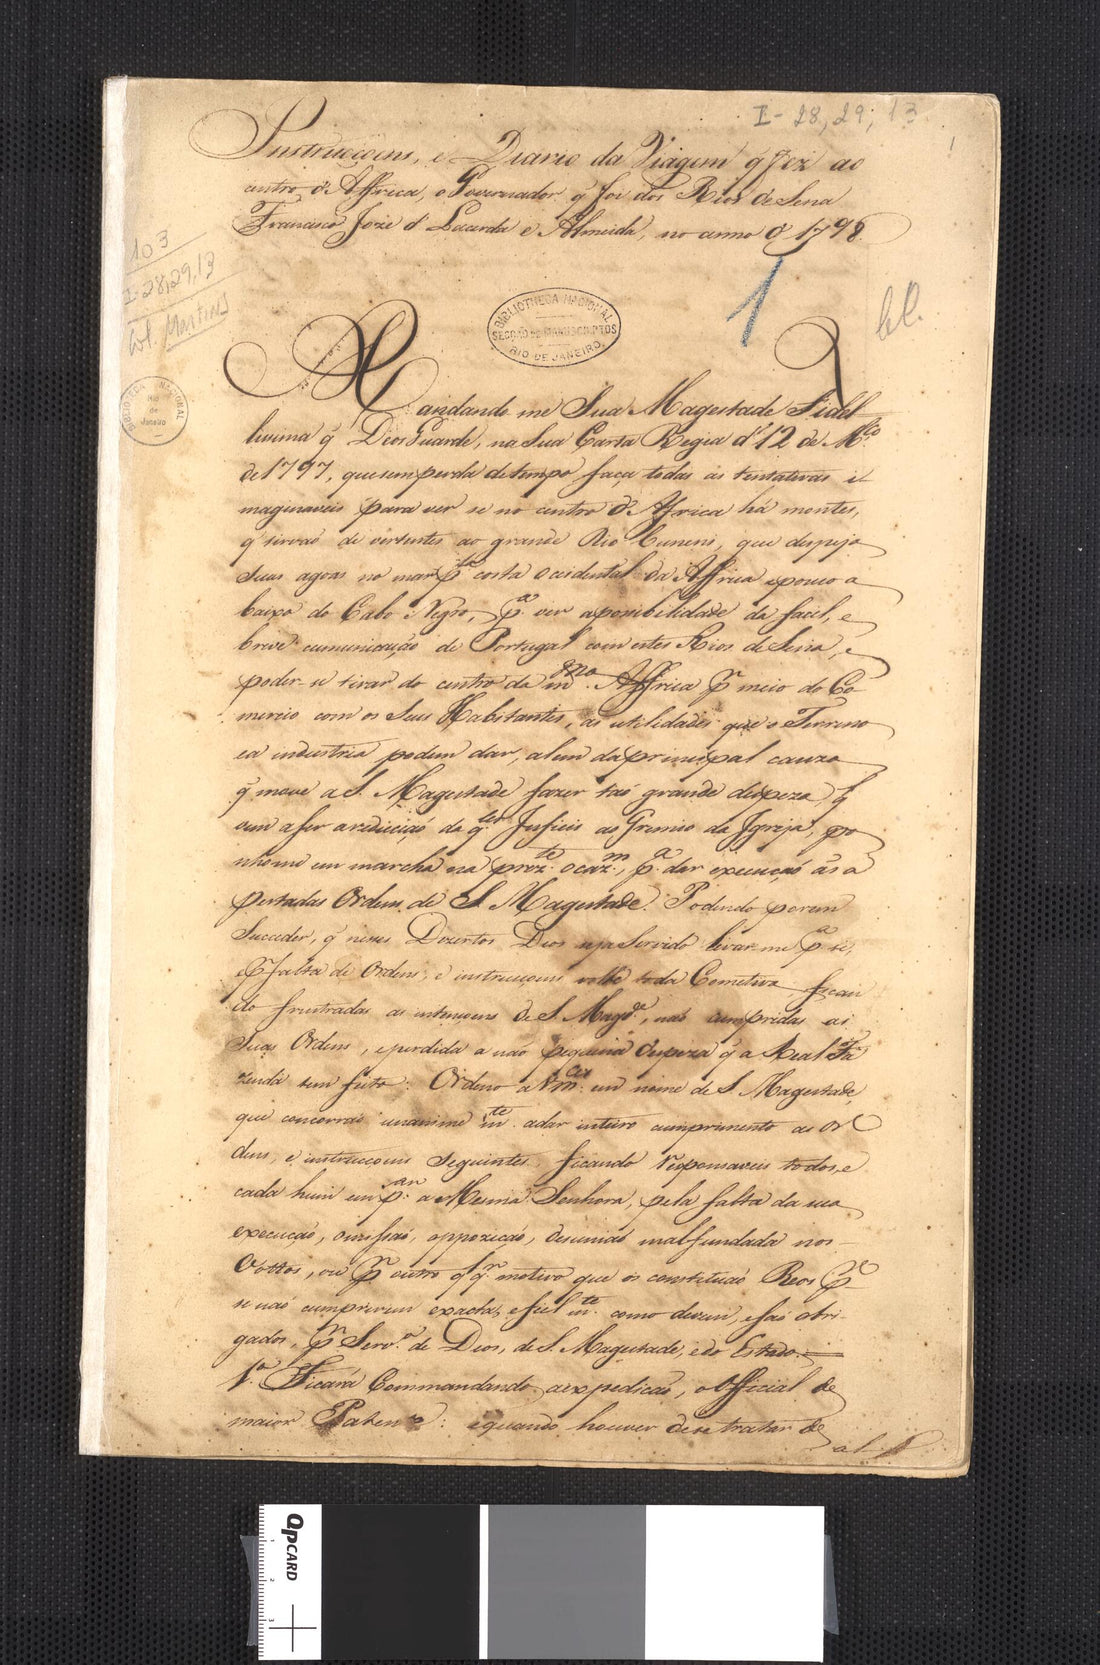 I-28,29,13
1
Instrucçoens, e Diario da Viagem q̃ fez ao
centro d'Affrica, o Governador q̃ foi dos Rios de Sena
Francisco Jozé d' Lacerda e Almeida, no anno d 1798.
103
I-28,29,13
Col. Martins
1
BIBLIOTHECA NACIONAL
SECÇÃO DE MANUSCRIPTOS
RIO DE JANEIRO
BIBLIOTECA NACIONAL
Rio
de
Janeiro
Mandando me Sua Magestade Fidel
lissima q̃ Deos Guarde, na Sua Carta Regia d'12 de M.ço
de 1797, que sem perda de tempo faça todas as tentativas i
maginaveis para ver se no centro d'Affrica há montes,
q̃ sirvaõ de vertentes ao grande Rio Cunene, que despeja
suas agoas no mar p.la costa occidental da Affrica e pouco a
baixo do Cabo Negro, p.a ver a posibilidade da facil, e
breve comunicação de Portugal com estes Rios de Sena, e
poder-se tirar do centro da m.ma Affrica p.r meio do Co
mercio com os Seus Habitantes, as utilidades que o Terreno
e a industria podem dar, alem da principal cauza
q̃ move a S. Magestade fazer taõ grande despeza, q̃
vem a ser a redução da q.les Infieis ao Gremio da Igreja, po
nhome em marcha na prez.te ocaz.m, p.a dar execuçaõ ás a
pontadas Ordens de S. Magestade. Podendo porem
Succeder, q̃ neses Dezertos Deos seja Servido levar me p.a si,
e p.r falta de Ordens, e instrucçoens volte toda Cometiva fican
do frustradas as intençoens de S. Mag.de, naõ cumpridas as
Suas Ordens, e perdida a naõ pequena despeza q̃ a Real Fa
zenda tem feito: Ordeno a Vm.ces em nome de S. Magestade,
que concorraõ unanime m.te a dar inteiro cumprimento as Or
dens, e instrucçoens seguintes, ficando responsaveis todos, e
cada hum em p.ar a Mesma Senhora, pela falta da sua
execuçaõ, omissaõ, oppoziçaõ, desuniaõ mal fundada nos
Vottos, ou p.r outro q.l q.r motivo que os constituaõ Reos p.o
se naõ cumprirem exacta, e fiel m.te como devem, e saõ obri
gados, p.r Serv.o de Deos, de S. Magestade, e do Estado.
1.º Ficará Commandando a expediçaõ, o Official de
maior Patente: e quando houver de se tratar de